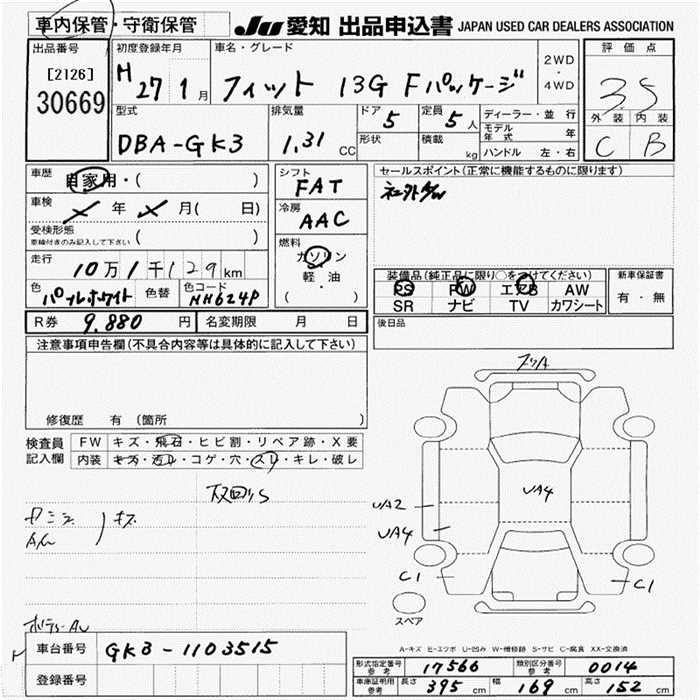 車内保管・守衛保管
JU 愛知 出品申込書 JAPAN USED CAR DEALERS ASSOCIATION
出品番号 初度登録年月 車名・グレード 評価点
[2126] 30669
H 27 1月
フィット 13G Fパッケージ
2WD・4WD
35
型式 DBA-GK3
排気量 1.31 CC
ドア 5
定員 5人
形状
積載 kg
ディーラー・並行
モデル年式 年
ハンドル 左・右
外装 内装
C B
車歴 自家用・( )
車検 年 月( 日)
受検形態 車検付きのみ記入して下さい ( )
走行 10万1千129km
色 パールホワイト 色替 色コード NH624P
シフト FAT
冷房 AAC
燃料 ガソリン
軽・油
( ・ )
セールスポイント(正常に機能するものに限ります)
装備品(純正品に限り○をつけてください)
PS PW エアB AW
SR ナビ TV カワシート
新車保証書
有・無
R券 9,880円 名変期限 月 日
後日品
注意事項申告欄(不具合内容等は具体的に記入して下さい)
修復歴 有(箇所 )
検査員記入欄
FW キズ・飛石・ヒビ割・リペア跡・X要
内装 キズ・汚レ・コゲ・穴・スレ・キレ・破レ
キズ
UA4
UA2
UA4
C1
C1
スペア
A-キズ E-エクボ U-凹み W-補修跡 S-サビ C-腐食 XX-交換済
車台番号 GK3-1103515
登録番号
形式指定番号 参考 17566 類別区分番号 参考 0014
車庫証明用 参考 長さ 395cm 幅 169cm 高さ 152cm